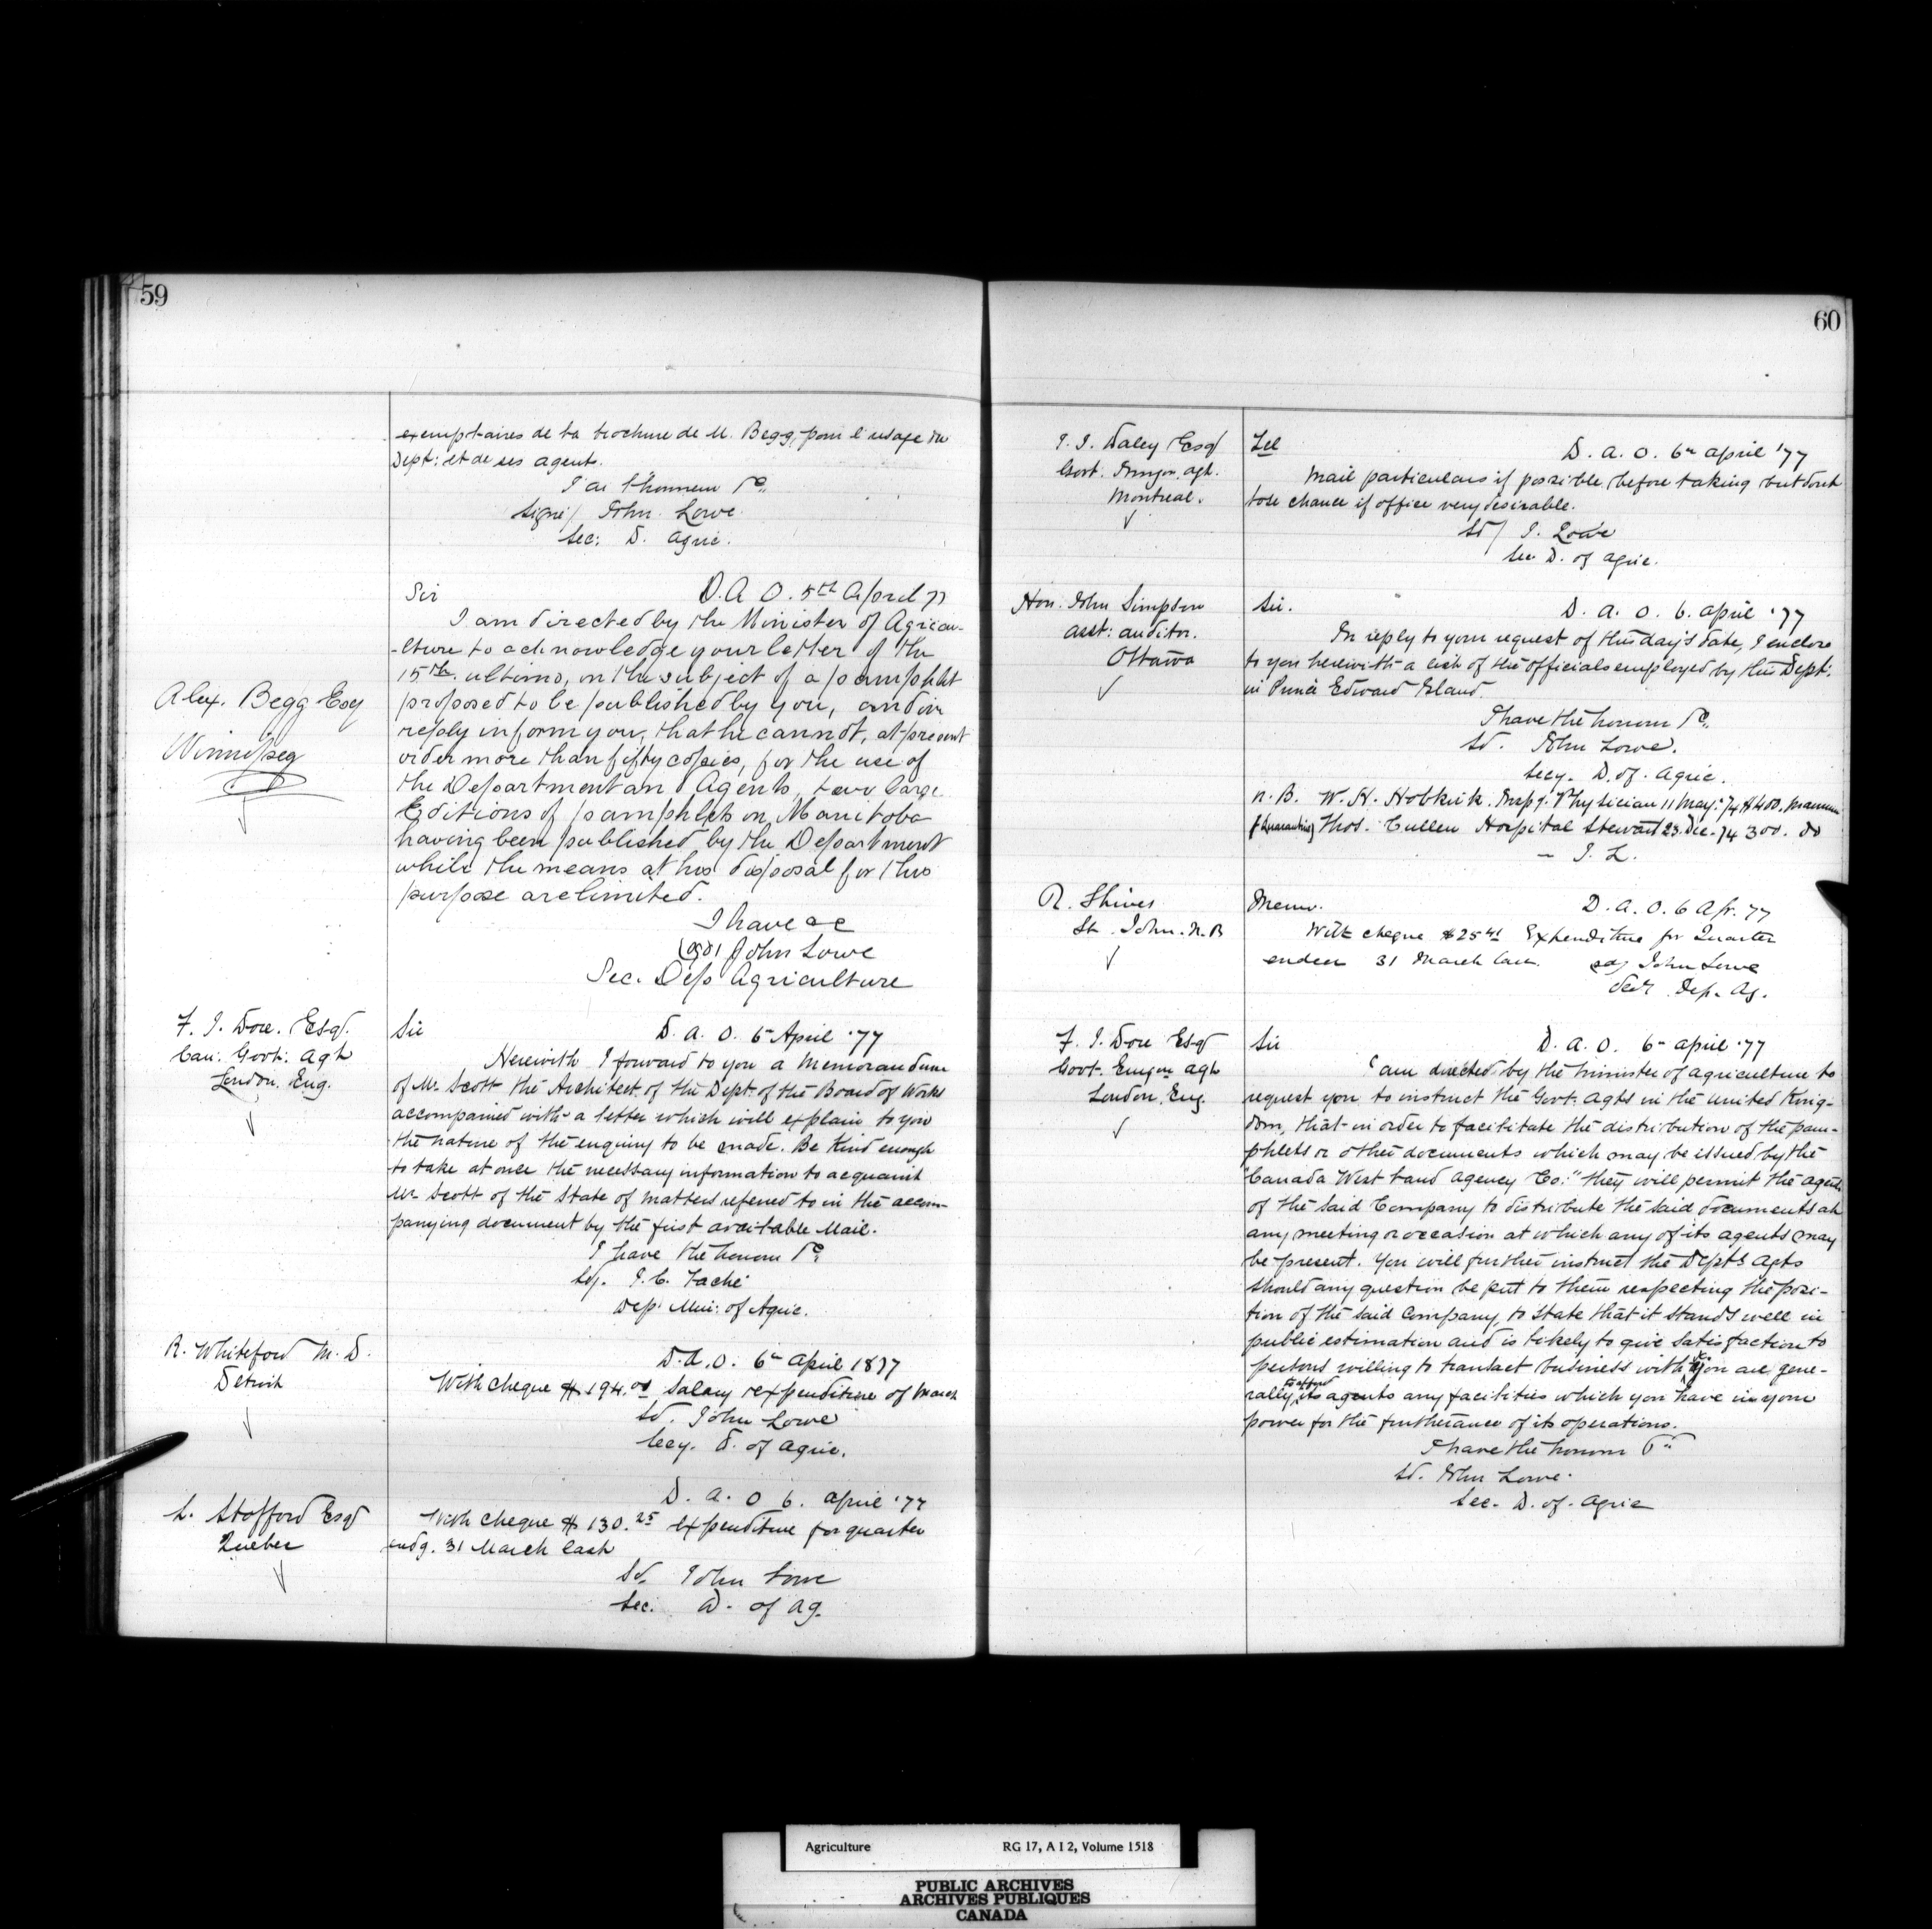 59
exemplaires de la brochure de M. Begg, pour l'usage du
Dept: et de ses agents.
J'ai l'honneur &c.
signé/ John Lowe
Sec: D. Agric.
Alex. Begg Esq
Winnipeg
Sir D. A. O. 5th April 77
I am directed by the Minister of Agricu-
-lture to acknowledge your letter of the
15th. ultimo, on the subject of a pamphlet
proposed to be published by you, and in
reply inform you, that he cannot, at present
order more than fifty copies, for the use of
the Department and Agents, two large
Editions of pamphlets on Manitoba
having been published by the Department
while the means at his disposal for this
purpose are limited.
I have &c
(sgd) John Lowe
Sec. Dep Agriculture
F. J. Dore. Esq.
Can: Govt: Agt
London. Eng.
Sir D. A. O. 6 April '77
Herewith I forward to you a Memorandum
of Mr. Scott the Architect of the Dept. of the Board of Works
accompanied with a letter which will explain to you
the nature of the enquiry to be made. Be kind enough
to take at once the necessary information to acquaint
Mr Scott of the State of matters referred to in the accom-
panying document by the first available Mail.
I have the honour &c
Sg. J. C. Taché
Dep: Min: of Agric.
R. Whiteford M. D.
Detroit
D. A. O. 6 April 1877
With cheque $ 194.00 Salary & expenditure of March
Sd. John Lowe
Secy. D. of Agric.
L. Stafford Esq
Quebec
D. A. O 6. April '77
With cheque $ 130.25 expenditure for quarter
endg. 31 March last
Sd. John Lowe
Sec. D. of Ag.
60
J. J. Daley Esq
Govt. Immgn. agt.
Montreal.
Tel
D. A. O. 6 April '77
Mail particulars if possible before taking but dont
lose chance if office very desirable.
Sd/ J. Lowe
Sec D. of Agric.
Hon. John Simpson
Asst: Auditor.
Ottawa
Sir. D. A. O. 6. April '77
In reply to your request of this day's date, I enclose
to you herewith a list of the officials employed by this Dept:
in Prince Edward Island.
I have the honour &c.
Sd. John Lowe.
Secy. D. of. Agric.
N. B. W. H. Hobkirk. Insp. Physician 11 May. 74 $400.
Thos. Cullen Hospital Steward 23. Dec. 74 300. do
— J. L.
R. Shives
St. John. N. B
Memo. D. A. O. 6 Apr. 77
With cheque $25 41 Expenditure for Quarter
ended 31 March last. sd/ John Lowe
Secy. Dep. Ag.
F. J. Dore Esq
Govt. Emgn agt
London. Eng.
Sir D. A. O. 6 April '77
I am directed by the Minister of Agriculture to
request you to instruct the Govt. Agts in the United King-
dom, that in order to facilitate the distribution of the pam-
phlets or other documents which may be issued by the
"Canada West Land Agency Co:" they will permit the agents
of the said Company to distribute the said documents at
any meeting or occasion at which any of its agents may
be present. You will further instruct the Dept's Agts
should any question be put to them respecting the posi-
tion of the said Company, to state that it stands well in
public estimation and is likely to give satisfaction to
persons willing to transact business with it. You are gene-
rally to afford its agents any facilities which you have in your
power for the furtherance of its operations.
I have the honour &c
Sd. John Lowe.
Sec. D. of. Agric
Agriculture RG 17, A I 2, Volume 1518
PUBLIC ARCHIVES
ARCHIVES PUBLIQUES
CANADA